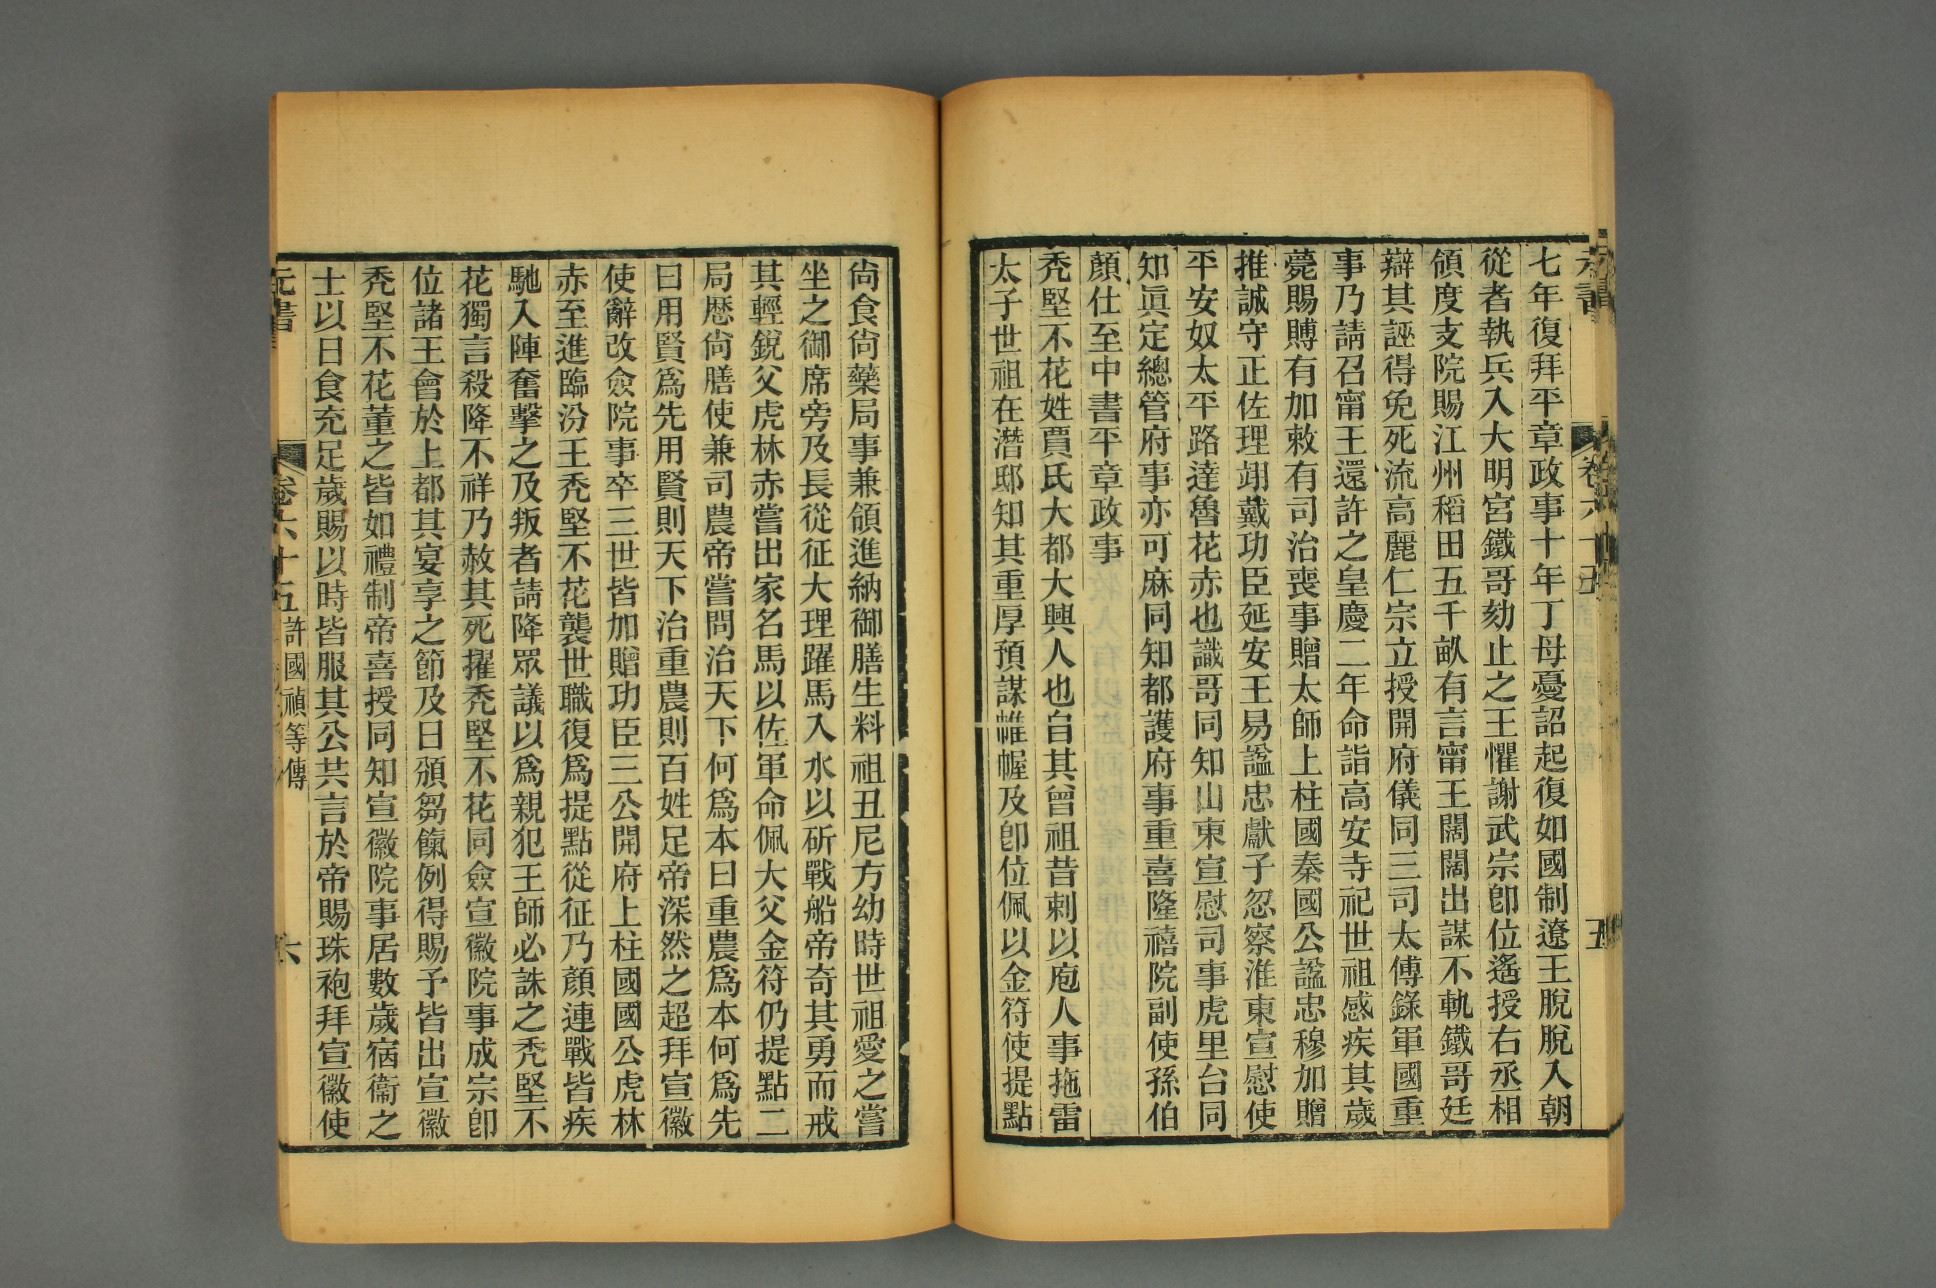 元書
卷六十五
五
七年復拜平章政事十年丁母憂詔起復如國制遼王脫脫入朝
從者執兵入大明宮鐵哥劾止之王懼謝武宗卽位遙授右丞相
領度支院賜江州稻田五千畝有言甯王闊闊出謀不軌鐵哥廷
辯其誣得免死流高麗仁宗立授開府儀同三司太傅錄軍國重
事乃請召甯王還許之皇慶二年命詣高安寺祀世祖感疾其歲
薨賜賻有加敕有司治喪事贈太師上柱國秦國公諡忠穆加贈
推誠守正佐理翊戴功臣延安王易諡忠獻子忽察淮東宣慰使
平安奴太平路達魯花赤也識哥同知山東宣慰司事虎里台同
知眞定總管府事亦可麻同知都護府事重喜隆禧院副使孫伯
顏仕至中書平章政事
禿堅不花姓賈氏大都大興人也自其曾祖昔剌以庖人事拖雷
太子世祖在潛邸知其重厚預謀帷幄及卽位佩以金符使提點
尙食尙藥局事兼領進納御膳生料祖丑尼方幼時世祖愛之嘗
坐之御席旁及長從征大理躍馬入水以斫戰船帝奇其勇而戒
其輕銳父虎林赤嘗出家名馬以佐軍命佩大父金符仍提點二
局歷尙膳使兼司農帝嘗問治天下何爲本曰重農爲本何爲先
曰用賢爲先用賢則天下治重農則百姓足帝深然之超拜宣徽
使辭改僉院事卒三世皆加贈功臣三公開府上柱國國公虎林
赤至進臨汾王禿堅不花襲世職復爲提點從征乃顏連戰皆疾
馳入陣奮擊之及叛者請降眾議以爲親犯王師必誅之禿堅不
花獨言殺降不祥乃赦其死擢禿堅不花同僉宣徽院事成宗卽
位諸王會於上都其宴享之節及日頒芻餼例得賜予皆出宣徽
禿堅不花董之皆如禮制帝喜授同知宣徽院事居數歲宿衞之
士以日食充足歲賜以時皆服其公共言於帝賜珠袍拜宣徽使
元書
卷六十五
許國禎等傳
六